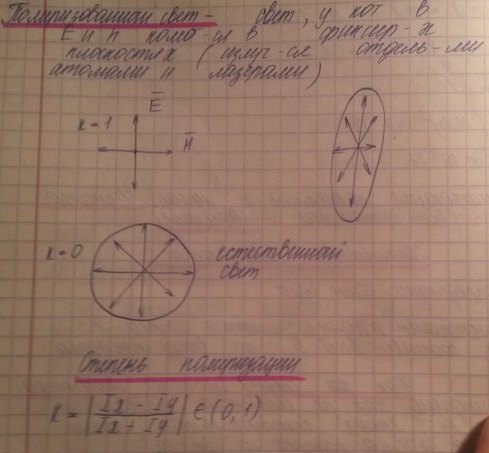 Поляризованный свет - свет, у кот в
E и H колеб-ся в фиксир-х
плоскостях (излуч-ся отдель-ми
атомами и лазерами)
E̅
к=1
H̅
к=0
естественный
свет
Степень поляризации
к = |Iх - Iy / Iх + Iy| ∈ (0,1)